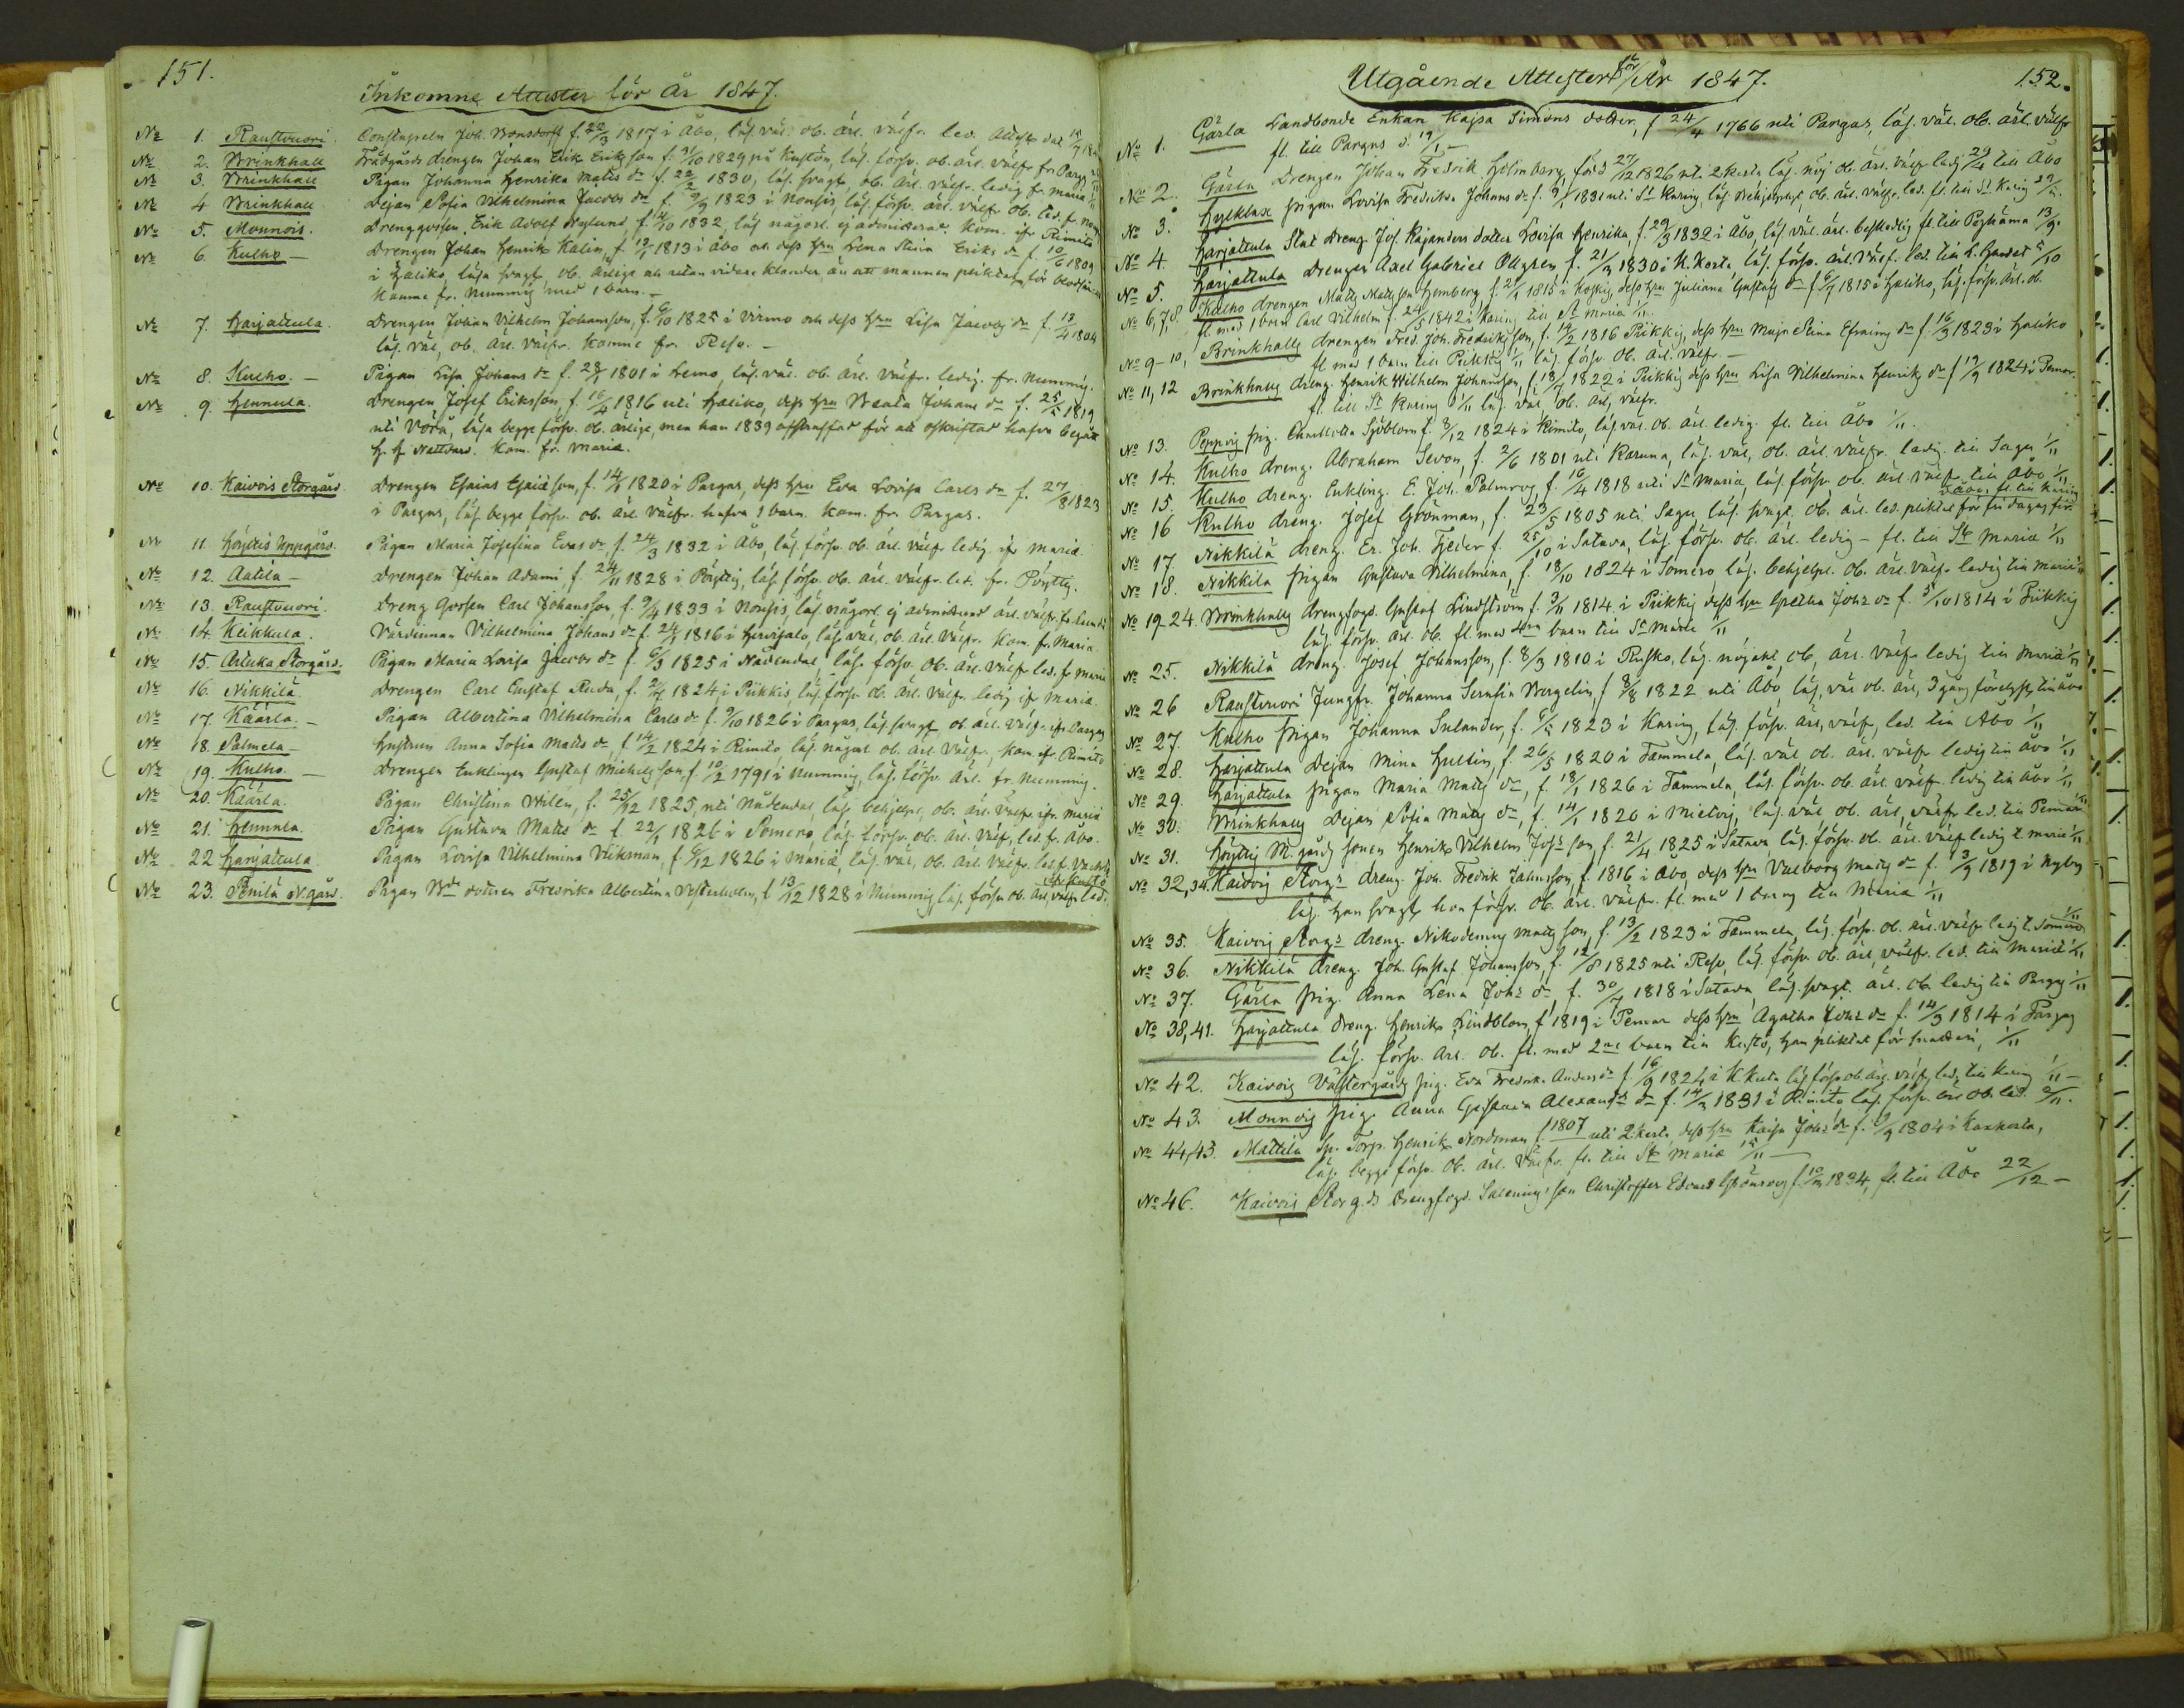 151.
Inkomne Attester för År 1847.
No 1. Raustvuori. Constapeln Joh. Bonsdorff f. 22/3 1817 i Åbo, läs. väl. ob. ärl. välfr. led.
No 2. Brinkhall Trädgårds drengen Johan Erik Eriksson f. 31/10 1829 på Kustön, läs. försv. ob. ärl. välfr. fr. Parg.
No 3. Brinkhall Pigan Johanna Henrika Matts dr f. 22/2 1830, läs. svagt, ob. ärl. välfr. ledig fr. Maria
No 4 Brinkhall Dejan Sofia Vilhelmina Jacobs dr f. 9/9 1823 i Nousis, läs. försv. ärl. välfr. ob. led. f.
No 5. Monnois. Drenggossen Erik Adolf Nylund f. 14/10 1832, läs någorl. ej admitterad. kom. ifr Rimito
No 6. Kulho – Drengen Johan Henrik Kalin, f. 19/1 1813 i Åbo och dess hru Lena Stina Eriks dr f. 10/6 1809
i Haliko, läsa svagt ob. ärlige utan vidare klander, än att mannen pliktat för
komma fr. Nummis med 1 barn. –
No 7. Harjattula. Drengen Johan Vilhelm Johansson, f. 6/10 1825 i Virmo och dess hru Lisa Jacobs dr f. 13/4 1804
läs. väl, ob. ärl. välfr. komne fr. Reso. –
No 8. Kulho. – Pigan Lisa Johans dr f. 28/1 1801 i Lemo, läs. väl. ob. ärl. välfr. ledig. fr. Nummis.
No 9. Hennula. Drengen Josef Eriksson, f. 16/4 1816 uti Haliko, dess hru Beata Johans dr f. 25/5 1819
uti Vörå, läsa begge försv. ob. ärlige, men han 1839 afstraffad för att oskriftad hafva begått
H. H. Nattvard. kom. fr. Maria.
No 10. Kaivois Storgård. Drengen Esaias Esaiasson, f. 14/1 1820 i Pargas, dess hru Eva Lovisa Carls dr f. 27/8 1823
i Pargas, läs. begge försv. ob. ärl. välfr. hafva 1 barn. kom. fr. Pargas.
No 11. Höyttis Uppgård. Pigan Maria Josefina Evas dr f. 24/3 1832 i Åbo, läs. försv. ob. ärl. välfr. ledig ifr Maria.
No 12. Aatila – Drengen Johan Adami f. 24/11 1828 i Pöyttis, läs. försv. ob. ärl. välfr. led. fr. Pöyttis.
No 13. Raustvuori. Dreng Gossen Carl Johansson, f. 9/4 1833 i Nousis, läs. någorl. ej admitterad ärl. välfr.
No 14. Keikkula. Värdinnan Vilhelmina Johans dr f. 24/5 1816 i Hirvisalo, läs väl, ob. ärl. välfr. kom. fr. Maria.
No 15. Arluka Storgård. Pigan Maria Lovisa Jacobs dr f. 6/3 1825 i Nådendal, läs. försv. ob. ärl. välfr. led. f. Maria
No 16. Nikkilä. Drengen Carl Gustaf Ruda, f. 1824 i Piikkis, läs. försv. ob. ärl. välfr. ledig ifr Maria.
No 17. Käärla. – Pigan Albertina Vilhelmina Carls dr f. 9/10 1826 i Pargas, läs. svagt ob. ärl. välfr. ifr Pargas
No 18. Palmela – Hustrun Anna Sofia Matts dr f. 14/2 1824 i Rimito, läs. någorl. ob. ärl. välfr. kom ifr Rimito
No 19. Kulho. – Drengen Enklingen Gustaf Michelsson f. 10/2 1791 i Nummis, läs. försv. ärl. fr. Nummis.
No 20. Käärla. Pigan Christina Wilén, f. 25/12 1825, uti Nådendal, läs. behjelpl. ob. ärl. välfr. ifr. Maria
No 21. Hennula. Pigan Gustava Matts dr f. 22/1 1826 i Somero, läs. försv. ob. ärl. välfr. led. fr. Åbo.
No 22 Harjattula. Pigan Lovisa Vilhelmina Vikman, f. 6/12 1826 i Maria, läs. väl, ob. ärl. välfr. led. f.
No 23. Penilä N.gård. Pigan dottren Fredrika Albertina Vesterholm, f. 13/12 1828 i Nummis, läs. försv. ob. ärl. välfr. led. ifr Kustö
Utgående Attester för År 1847.
152.
No 1. Gärla Landbonde Enkan Kajsa Simons dotter, f 24/4 1766 uti Pargas, läs. väl. ob. ärl. välfr
fl. till Pargas d. 19/1 –
No 2. Gärla Drengen Johan Fredrik Holmberg född 27/12 1826 uti läs. nöj. ob. ärl. välfr ledig 29/4 till Åbo
No 3. Hylklax pigan Lovisa Fredrika Johans dr f. 9/1 1831 uti St Karins, läs. behjelpligt, ob. ärl. välfr. led. fl. till St Karins
No 4. Harjattula Stat Dreng. Joh. Rajanders dotter Lovisa Henrika, f. 29/3 1832 i Åbo, läs väl. ärl. beskedlig fl. till Pojhama 13/9.
No 5. Harjattula Drengen Axel Gabriel Öllgren, f. 21/3 1830 i N. Korta, läs. försv. ärl. välfr. led. till 5/10
No 6, 7, 8 Kulho drengen Matts Mattsson Hemberg, f. 1815 i Koskis, dess hru Juliana Gustafs dr f 6/9 1815 i Haliko, läs. försv. ärl. ob.
fl. med 1 barn Carl Vilhelm f. 24/5 1842 i Karins till St Maria 1/11.
No 9–10, Brinkhalls drengen Fred. Joh. Fredriksson, f. 14/2 1816 Piikkis, dess hru Maja Stina Efraims dr f. 16/3 1823 i Haliko
fl med 1 barn till Piikkis 1/11 läs. försv. ob. ärl. välfr. –
No 11, 12 Brinkhalls dreng. Henrik Wilhelm Johansson, f. 18/7 1822 i Piikkis, dess hru Lisa Vilhelmina Henriks dr f 19/9 1824 i Pemar.
fl. till St Karins 1/11 läs. väl, ob. ärl. välfr.
No 13. pig. Charlotta Sjöblom f. 8/12 1824 i Rimito, läs. väl. ob. ärl. ledig. fl. till Åbo 1/11.
No 14. Kulho dreng. Abraham Sevon, f. 2/6 1801 uti Karuna, läs. väl, ob. ärl. välfr. ledig. till Sagu 1/11
No 15. Kulho dreng. Enkling. E. Joh. Palmroos, f. 16/4 1818 uti St Maria, läs. försv. ob. ärl. välfr till Åbo 1/11
No 16 Kulho dreng. Josef Grönman, f. 23/5 1805 uti Sagu, läs. svagt ob. ärl. led. pliktat för i Åbo, fl. till Karins
No 17. Nikkilä dreng. Er. Joh. Fjeder f. 25/10 i Satava, läs. försv. ob. ärl. ledig – fl. till St Maria 1/11
No 18. Nikkilä pigan Gustava Vilhelmina, f. 18/10 1824 i Somero, läs. behjelpl. ob. ärl. välfr ledig till Maria
No 19–24. Brinkhalls drengfogd. Gustaf Lindström f. 3/11 1814 i Piikkis dess hru Gretha Johs dr f. 5/10 1814 i Piikkis
läs. försv. ärl. ob. fl. med 4ra barn till St Maria 1/11
No 25. Nikkilä dreng. Josef Johansson, f. 8/3 1810 i Rusko, läs. nöjakl. ob, ärl. välfr ledig till Maria 1/11
No 26 Raustvuori Jungfr. Johanna Serafia Bergelin, f 8/8 1822 uti Åbo, läs. väl ob. ärl, 3 gång förelyst, till Åbo
No 27. Kulho pigan Johanna Sulander, f. 1823 i Karins, läs. försv. ärl, välfr, led. till Åbo 1/11
No 28. Harjattula Dejan Mina Hultin, f. 26/5 1820 i Tammela, läs. väl ob. ärl. välfr ledig till Åbo 1/11
No 29. Harjattula pigan Maria Matts dr, f. 18/1 1826 i Tammela, läs. försv. ob. ärl välfr. ledig till Åbo 1/11
No 30. Brinkhalls Dejan Sofia Matts dr, f. 14/1 1820 i Mietois, läs. väl ob. ärl, välfr led. till Pemar
No 31. Höyttis M. gårds sonen Henrik Vilhelm Johs son f. 21/4 1825 i Satava läs. försv. ob. ärl. välfr ledig t. Maria 1/11.
No 32, 34. Kaivois Storgs dreng. Joh. Fredrik Zakrisson f. 1816 i Åbo, dess hru Valborg Matts dr f. 13/9 1819 i Nyby
läs. han svagt hon försv. ob. ärl. välfr. fl. med 1 barn till Maria 1/11
No 35. Kaivois Storgs dreng. Nikodemus Matts son, f. 13/2 1823 i Tammela, läs. försv. ob. ärl. välfr ledig t. Somero 1/11
No 36. Nikkilä dreng. Joh. Gustaf Johansson, f. 12/8 1825 uti Reso, läs. försv. ob. ärl, välfr. led. till Maria 1/11
No 37. Gärla pig. Anna Lena Johs dr, f. 30/7 1818 i Satava, läs. svagt. ärl. ob. ledig till Pargs 1/11
No 38, 41. Harjattula dreng. Henrik Lindblom, f 1819 i Pemar dess hru Agatha Johs dr f. 14/3 1814 i Pargas
läs. försv. ärl. ob. fl. med 2ne barn till Kustö, han pliktat för snatteri, 1/11
No 42. Kaivois Västergårds pig. Eva Fredrika Anders dr f. 16/9 1824 i läs försv. ob. ärl. välfr. led. till Karins 1/11 –
No 43. Monnois pig. Anna Gustava Alexandrs dr f. 14/3 1831 i Rimito läs. försv. ärl. ob. led. 2/11.
No 44, 45. Mattila Sp. Torp. Henrik Nordman f. 1807 uti dess hru Kajsa Johs dr f. 1804 i Kaxkerta,
läs. begge försv. ob. ärl. välfr. fl. till St Maria 15/11 –
No 46. Kaivois Storg.ds drengfogd. Salenius' son Christoffer Edvard Grönroos f. 1834, fl. till Åbo 22/12 –